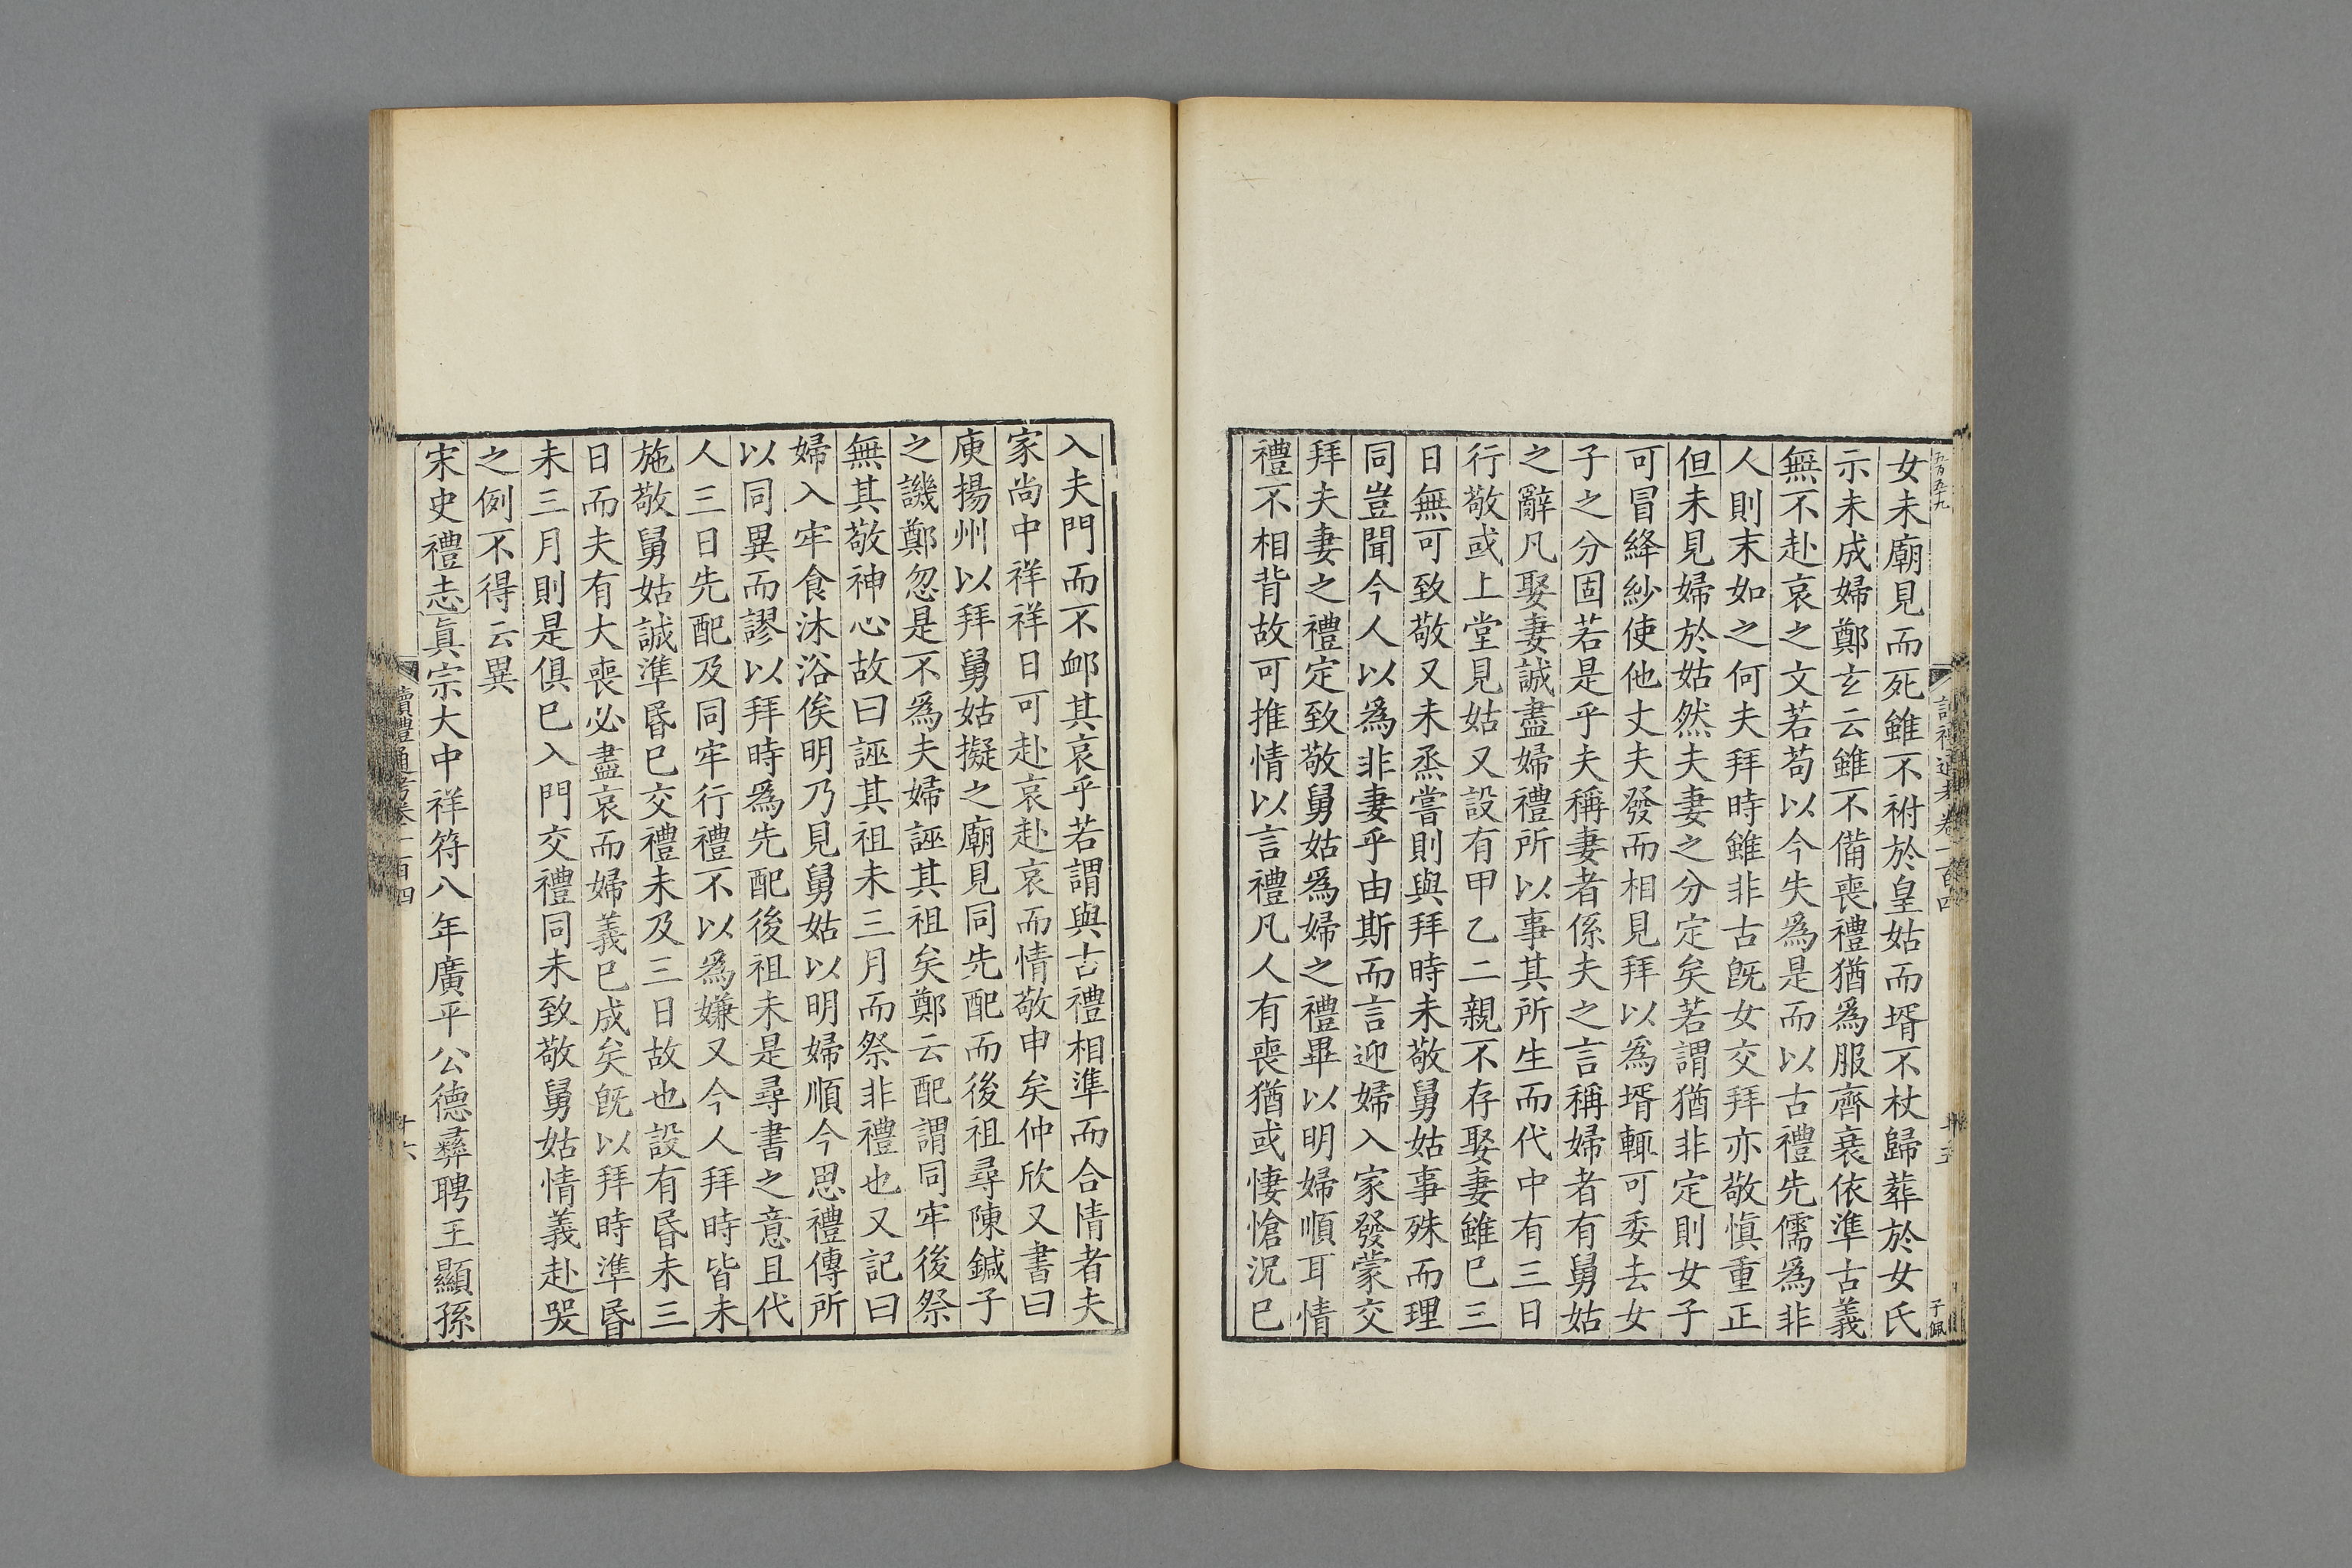 女未廟見而死雖不祔於皇姑而壻不杖歸葬於女氏
示未成婦鄭玄云雖不備喪禮猶爲服齊衰依準古義
無不赴哀之文若苟以今失爲是而以古禮先儒爲非
人則末如之何夫拜時雖非古旣女交拜亦敬愼重正
但未見婦於姑然夫妻之分定矣若謂猶非定則女子
可冒絳紗使他丈夫發而相見拜以爲壻輒可委去女
子之分固若是乎夫稱妻者係夫之言稱婦者有舅姑
之辭凡娶妻誠盡婦禮所以事其所生而代中有三日
行敬或上堂見姑又設有甲乙二親不存娶妻雖巳三
日無可致敬又未烝嘗則與拜時未敬舅姑事殊而理
同豈聞今人以爲非妻乎由斯而言迎婦入家發蒙交
拜夫妻之禮定致敬舅姑爲婦之禮畢以明婦順耳情
禮不相背故可推情以言禮凡人有喪猶或悽愴況巳
五百五十九
讀禮通考卷一百四
十五
子佩
入夫門而不衈其哀乎若謂與古禮相準而合情者夫
家尚中祥祥日可赴哀赴哀而情敬申矣仲欣又書曰
庾揚州以拜舅姑擬之廟見同先配而後祖尋陳鍼子
之譏鄭忽是不爲夫婦誣其祖矣鄭云配謂同牢後祭
無其敬神心故曰誣其祖未三月而祭非禮也又記曰
婦入牢食沐浴俟明乃見舅姑以明婦順今思禮傳所
以同異而謬以拜時爲先配後祖未是尋書之意且代
人三日先配及同牢行禮不以爲嫌又今人拜時皆未
施敬舅姑誠準昏巳交禮未及三日故也設有昏未三
日而夫有大喪必盡哀而婦義巳成矣旣以拜時準昏
未三月則是俱巳入門交禮同未致敬舅姑情義赴哭
之例不得云異
宋史禮志眞宗大中祥符八年廣平公德彝聘王顯孫
讀禮通考卷一百四
十六